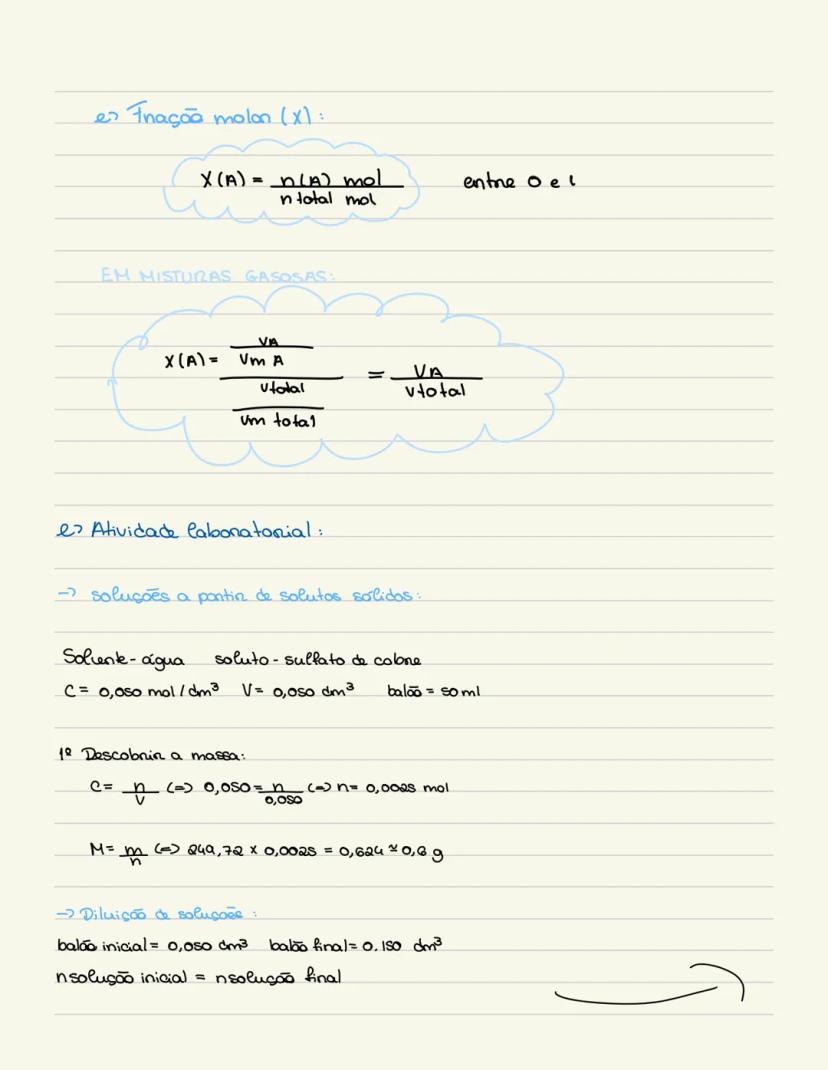 ↳ Fração molar (X):
X(A) = n(A) mol / n total mol entre 0 e 1
EM MISTURAS GASOSAS:
X(A) = (VA / Vm A) / (Vtotal / Vm total) = VA / Vtotal
↳ Atividade laboratorial:
→ soluções a partir de solutos sólidos:
Solvente - água soluto - sulfato de cobre
C = 0,050 mol / dm³ V = 0,050 dm³ balão = 50 ml
1º Descobrir a massa:
C = n / V (=) 0,050 = n / 0,050 (=) n = 0,0025 mol
M = m / n (=) 249,72 x 0,0025 = 0,624 ≃ 0,6 g
→ Diluição de soluções:
balão inicial = 0,050 dm³ balão final = 0.150 dm³
n solução inicial = n solução final